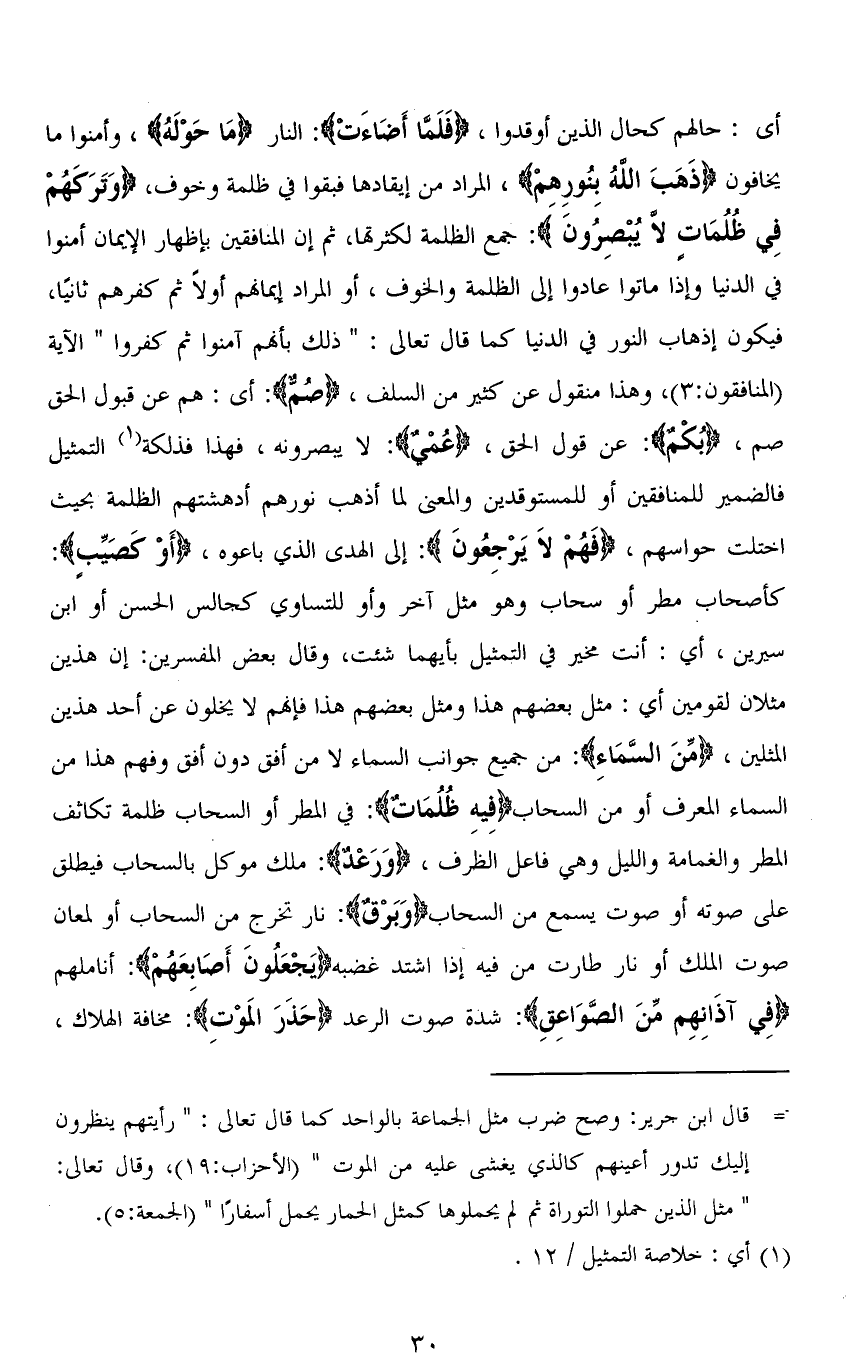 أى : حالهم كحال الذين أوقدوا ، ﴿فَلَمَّا أَضَاءَتْ﴾: النار ﴿مَا حَوْلَهُ﴾ ، وأمنوا ما
يخافون ﴿ذَهَبَ اللَّهُ بِنُورِهِمْ﴾ ، المراد من إيقادها فبقوا في ظلمة وخوف، ﴿وَتَرَكَهُمْ
فِي ظُلُمَاتٍ لاَّ يُبْصِرُونَ ﴾: جمع الظلمة لكثرتها، ثم إن المنافقين بإظهار الإيمان أمنوا
في الدنيا وإذا ماتوا عادوا إلى الظلمة والخوف ، أو المراد إيمانهم أولاً ثم كفرهم ثانيًا،
فيكون إذهاب النور في الدنيا كما قال تعالى : " ذلك بأنهم آمنوا ثم كفروا " الآية
(المنافقون:٣)، وهذا منقول عن كثير من السلف ، ﴿صُمٌّ﴾: أى : هم عن قبول الحق
صم ، ﴿بُكْمٌ﴾: عن قول الحق ، ﴿عُمْيٌ﴾: لا يبصرونه ، فهذا فذلكة(١) التمثيل
فالضمير للمنافقين أو للمستوقدين والمعنى لما أذهب نورهم أدهشتهم الظلمة بحيث
اختلت حواسهم ، ﴿فَهُمْ لاَ يَرْجِعُونَ ﴾: إلى الهدى الذي باعوه ، ﴿أَوْ كَصَيِّبٍ﴾:
كأصحاب مطر أو سحاب وهو مثل آخر وأو للتساوي كجالس الحسن أو ابن
سيرين ، أي : أنت مخير في التمثيل بأيهما شئت، وقال بعض المفسرين: إن هذين
مثلان لقومين أي : مثل بعضهم هذا ومثل بعضهم هذا فإنهم لا يخلون عن أحد هذين
المثلين ، ﴿مِّنَ السَّمَاءِ﴾: من جميع جوانب السماء لا من أفق دون أفق وفهم هذا من
السماء المعرف أو من السحاب﴿فِيهِ ظُلُمَاتٌ﴾: في المطر أو السحاب ظلمة تكاثف
المطر والغمامة والليل وهي فاعل الظرف ، ﴿وَرَعْدٌ﴾: ملك موكل بالسحاب فيطلق
على صوته أو صوت يسمع من السحاب﴿وَبَرْقٌ﴾: نار تخرج من السحاب أو لمعان
صوت الملك أو نار طارت من فيه إذا اشتد غضبه﴿يَجْعَلُونَ أَصَابِعَهُمْ﴾: أناملهم
﴿فِي آذَانِهِم مِّنَ الصَّوَاعِقِ﴾: شدة صوت الرعد ﴿حَذَرَ المَوْتِ﴾: مخافة الهلاك ،
= قال ابن جرير: وصح ضرب مثل الجماعة بالواحد كما قال تعالى : " رأيتهم ينظرون
إليك تدور أعينهم كالذي يغشى عليه من الموت " (الأحزاب:١٩)، وقال تعالى:
" مثل الذين حملوا التوراة ثم لم يحملوها كمثل الحمار يحمل أسفارًا " (الجمعة:٥).
(١) أي : خلاصة التمثيل / ١٢ .
٣٠